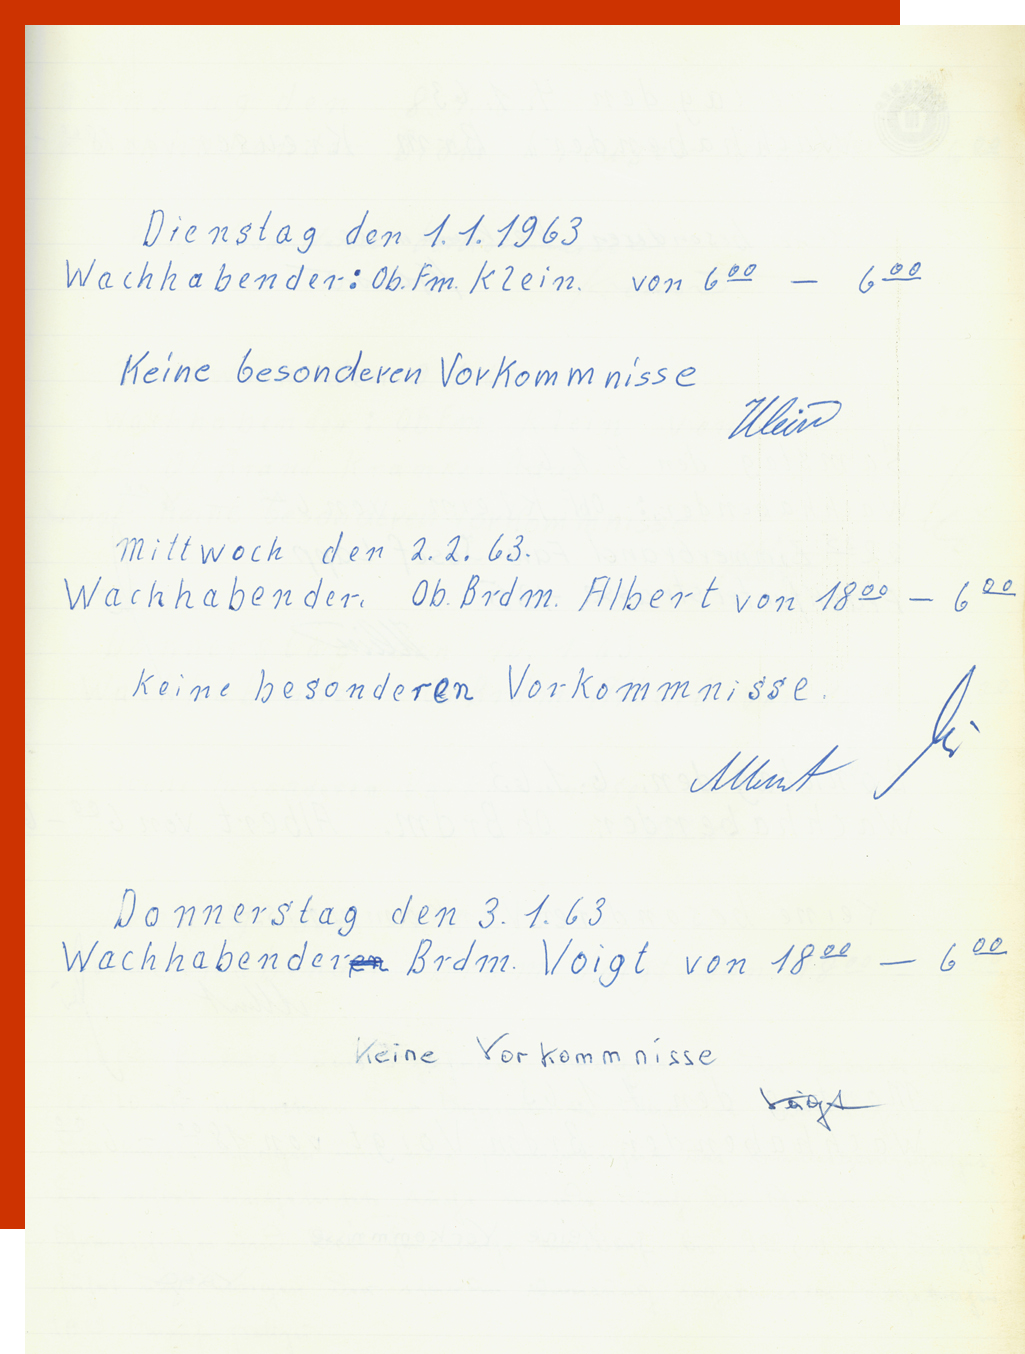 Dienstag den 1.1.1963
Wachhabender: Ob.Fm. Klein. von 6⁰⁰ — 6⁰⁰
Keine besonderen Vorkommnisse
Klein
Mittwoch den 2.2.63.
Wachhabender. Ob.Brdm. Albert von 18⁰⁰ — 6⁰⁰
Keine besonderen Vorkommnisse.
Albert
Donnerstag den 3.1.63
Wachhabender Brdm. Voigt von 18⁰⁰ — 6⁰⁰
Keine Vorkommnisse
Voigt